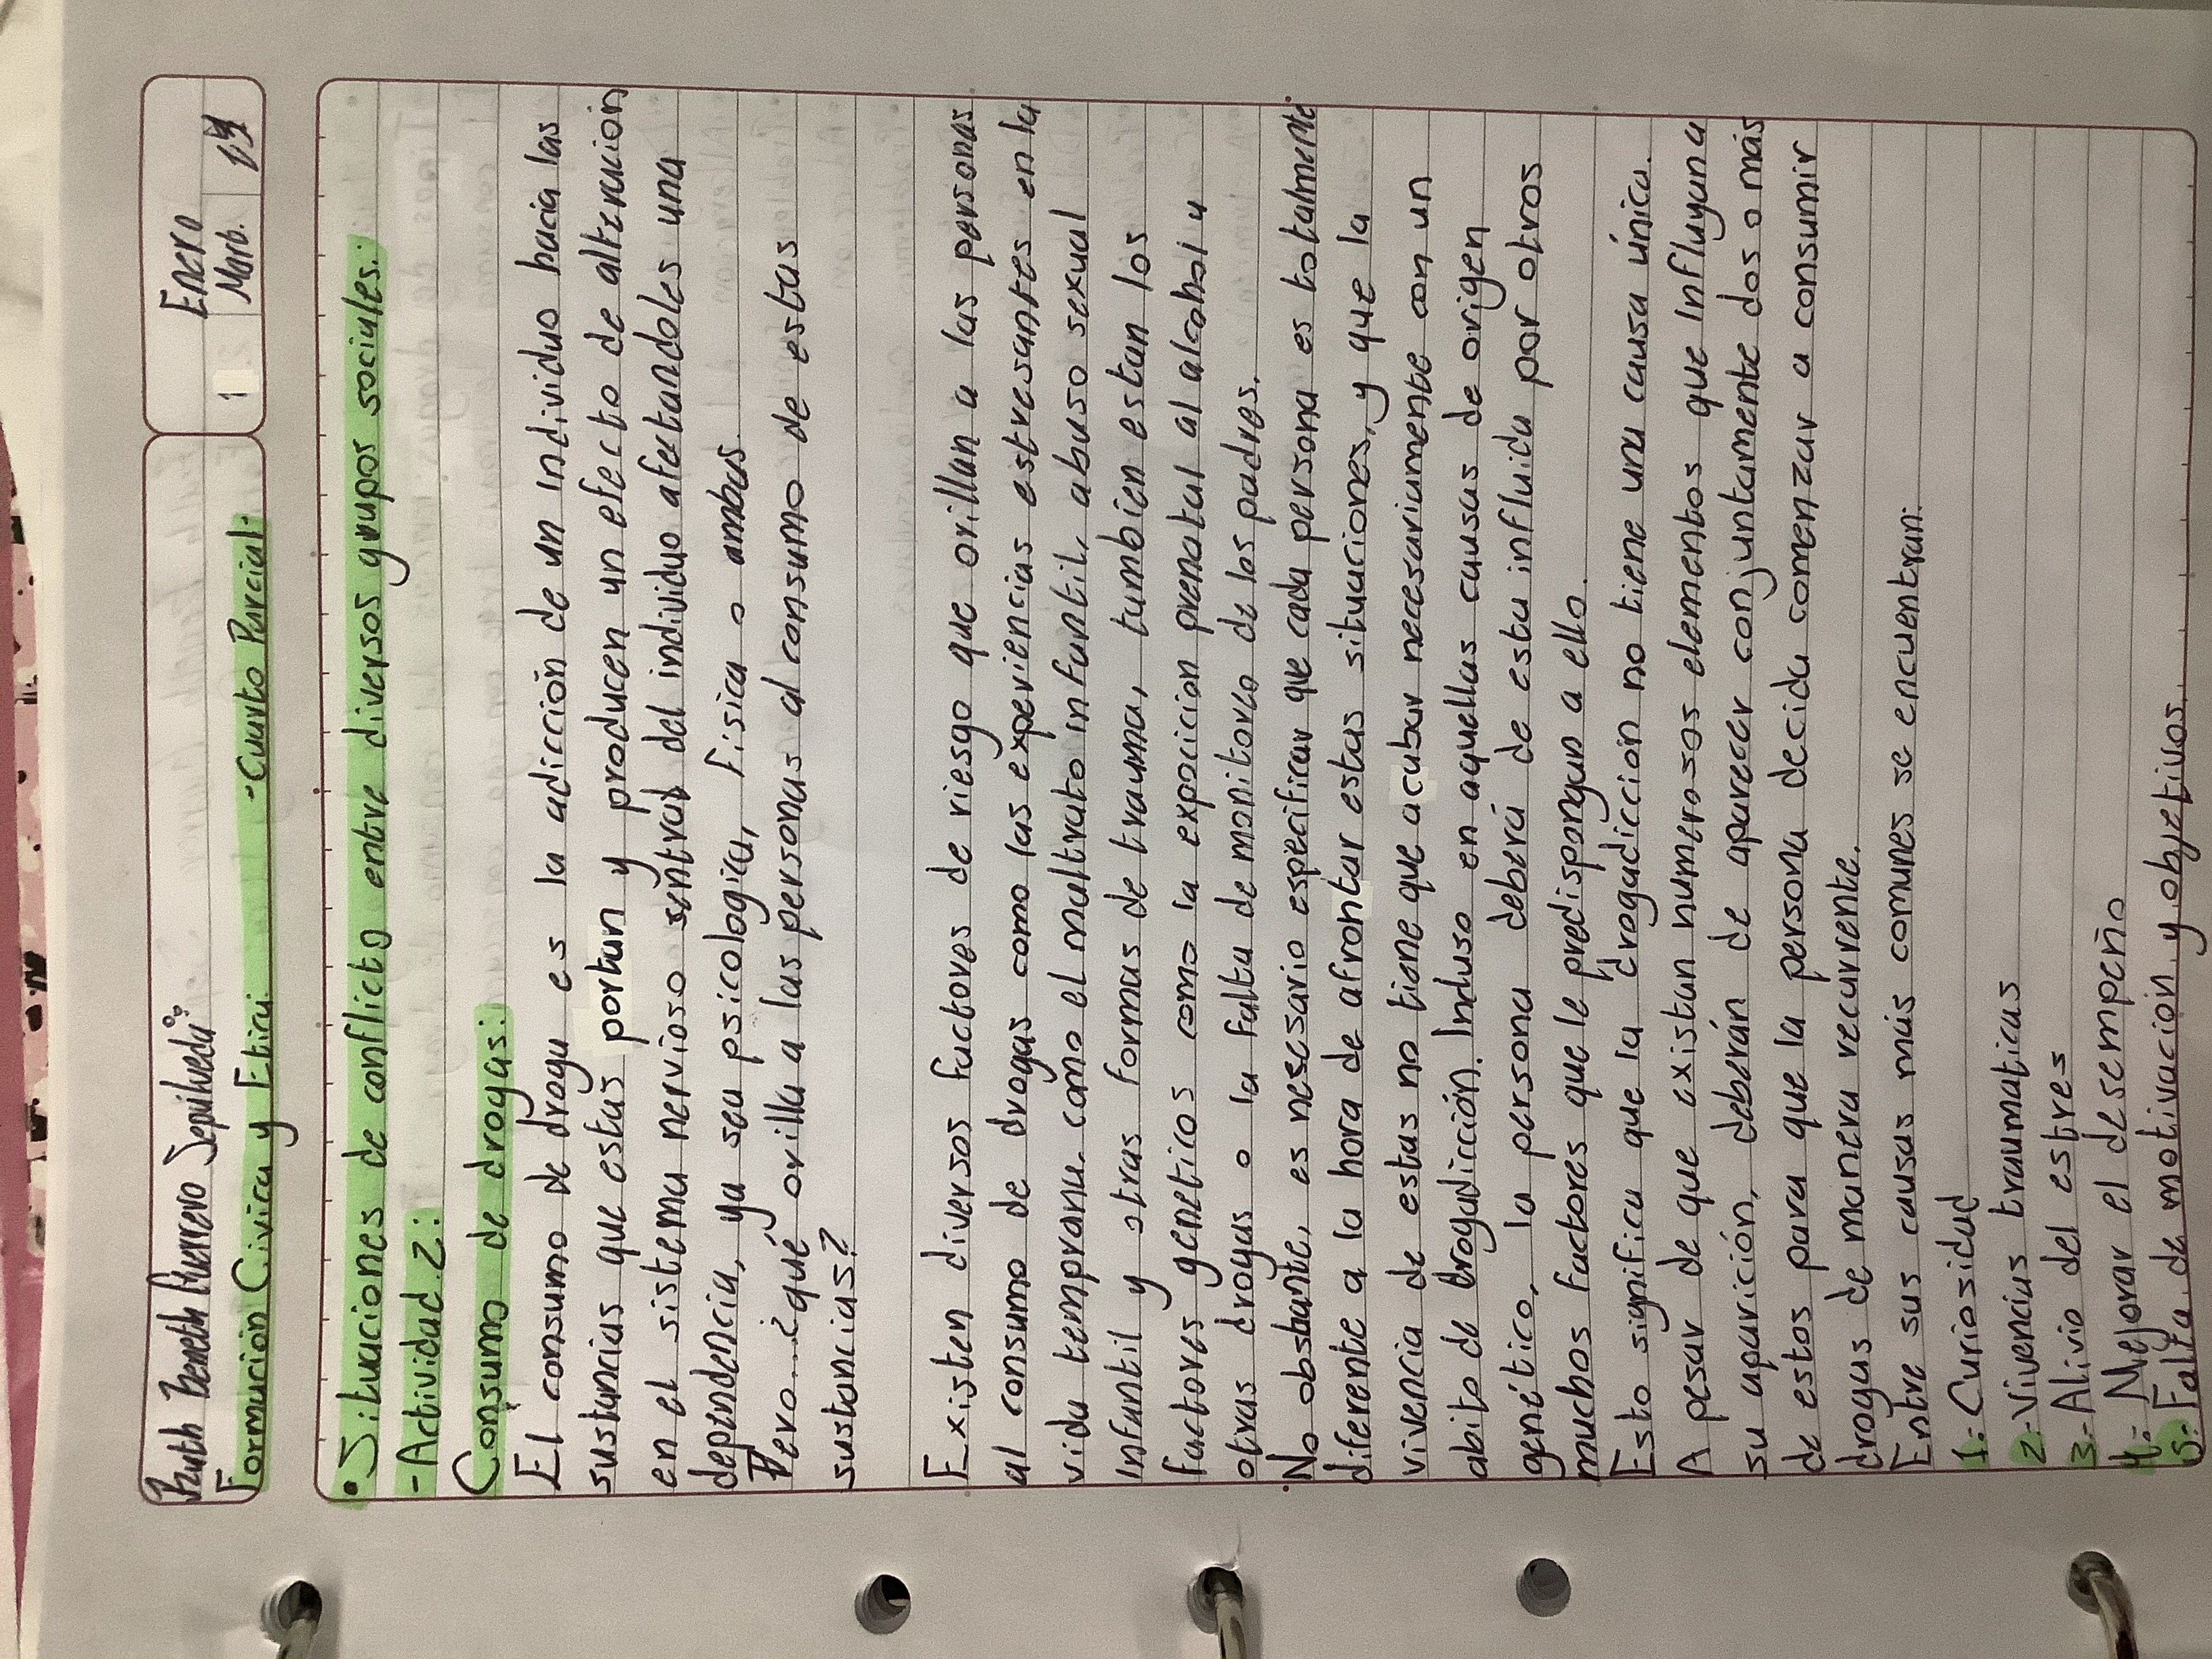 Ruth Beneth Guerrero Sepulveda Enero
Formacion Civica y Etica. -Cuarto Parcial: 1 Marb. 19
• Situaciones de conflicto entre diversos grupos sociales:
- Actividad 2:
Consumo de drogas:
El consumo de droga es la adicción de un individuo hacia las
sustancias que estas portan y producen un efecto de alteracion
en el sistema nervioso sentral del individuo afectandoles una
dependencia, ya sea psicologica, fisica o ambas.
Pero... ¿qué orilla a las personas al consumo de estas
sustancias?
Existen diversos factores de riesgo que orillan a las personas
al consumo de drogas como las experiencias estresantes en la
vida temprana. como el maltrato infantil, abuso sexual
infantil y otras formas de trauma, tambien estan los
factores geneticos como la exposicion prenatal al alcohol y
otras drogas o la falta de monitoreo de los padres.
No obstante, es nesesario especificar que cada persona es totalmente
diferente a la hora de afrontar estas situaciones, y que la
vivencia de estas no tiene que acabar necesariamente con un
abito de drogadicción. Incluso en aquellas causas de origen
genético, la persona deberá de esta influida por otros
muchos factores que le predispongan a ello.
Esto significa que la drogadiccion no tiene una causa única.
A pesar de que existan numerosos elementos que influyan a
su aparición, deberán de aparecer conjuntamente dos o más
de estos para que la persona decida comenzar a consumir
drogas de manera recurrente.
Entre sus causas más comunes se encuentran:
1.- Curiosidad
2.- Vivencias traumaticas
3.- Alivio del estres
4.- Mejorar el desempeño
5.- Falta de motivacion y objetivos.